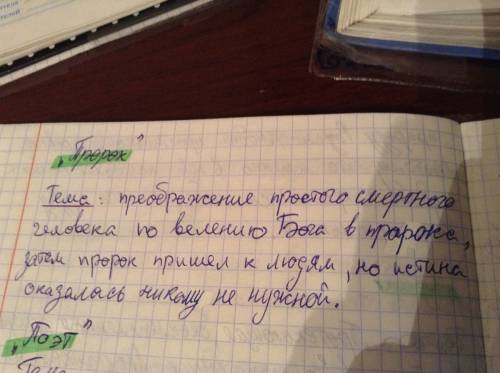 „Пророк"
Тема: преображение простого смертного
человека по велению Бога в пророка,
затем пророк пришел к людям, но истина
оказалась никому не нужной.
„Поэт"
Тема